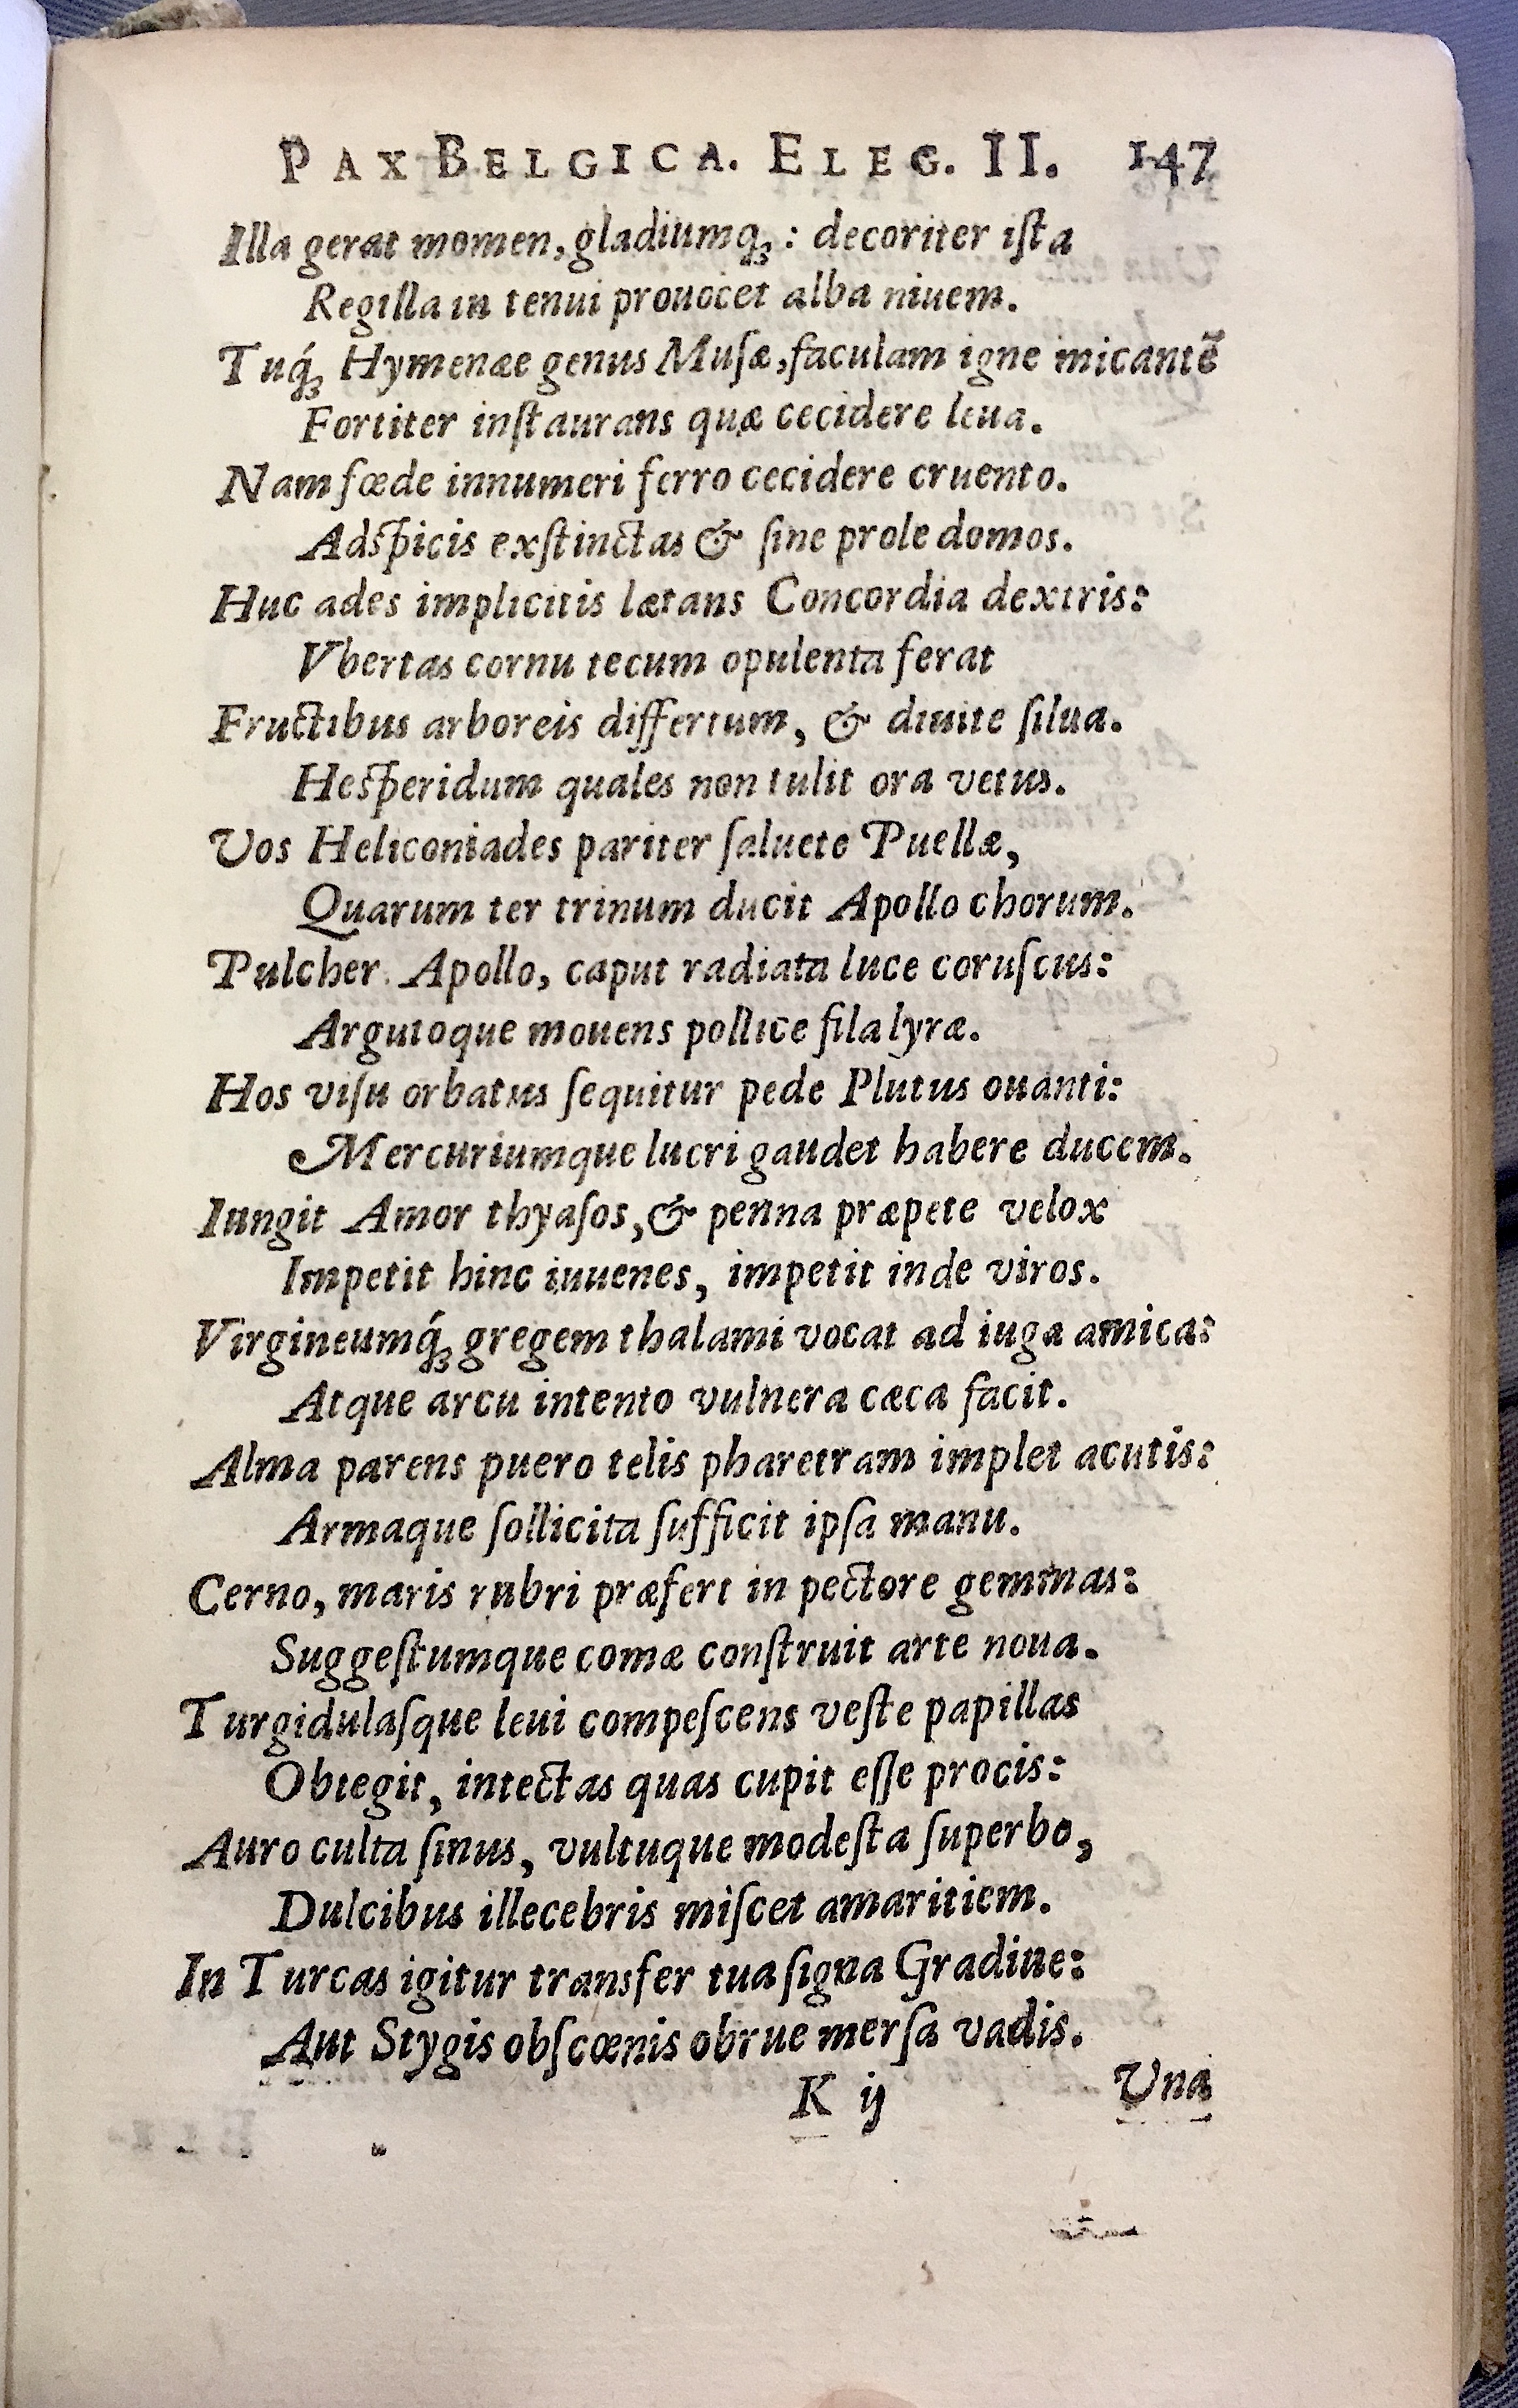 PAX BELGICA. ELEG. II. 147
Illa gerat momen, gladiumq́ꝫ: decoriter iſta
Regilla in tenui prouocet alba niuem.
Tuq́ꝫ Hymenæe genus Muſæ, faculam igne micantẽ
Fortiter inſtaurans quæ cecidere leua.
Nam fœde innumeri ferro cecidere cruento.
Adſpicis exſtinctas & ſine prole domos.
Huc ades implicitis lætans Concordia dextris:
Vbertas cornu tecum opulenta ferat
Fructibus arboreis differtum, & diuite ſilua.
Heſperidum quales non tulit ora vetus.
Vos Heliconiades pariter ſaluete Puellæ,
Quarum ter trinum ducit Apollo chorum.
Pulcher Apollo, caput radiata luce coruſcus:
Argutoque mouens pollice fila lyræ.
Hos viſu orbatus ſequitur pede Plutus ouanti:
Mercuriumque lucri gaudet habere ducem.
Iungit Amor thyaſos, & penna præpete velox
Impetit hinc iuuenes, impetit inde viros.
Virgineumq́ꝫ gregem thalami vocat ad iuga amica:
Atque arcu intento vulnera cæca facit.
Alma parens puero telis pharetram implet acutis:
Armaque ſollicita ſufficit ipſa manu.
Cerno, maris rubri præfert in pectore gemmas:
Suggeſtumque comæ conſtruit arte noua.
Turgidulaſque leui compeſcens veſte papillas
Obtegit, intectas quas cupit eſſe procis:
Auro culta ſinus, vultuque modeſta ſuperbo,
Dulcibus illecebris miſcet amaritiem.
In Turcas igitur transfer tua ſigna Gradiue:
Aut Stygis obſcœnis obrue merſa vadis.
K ij Una